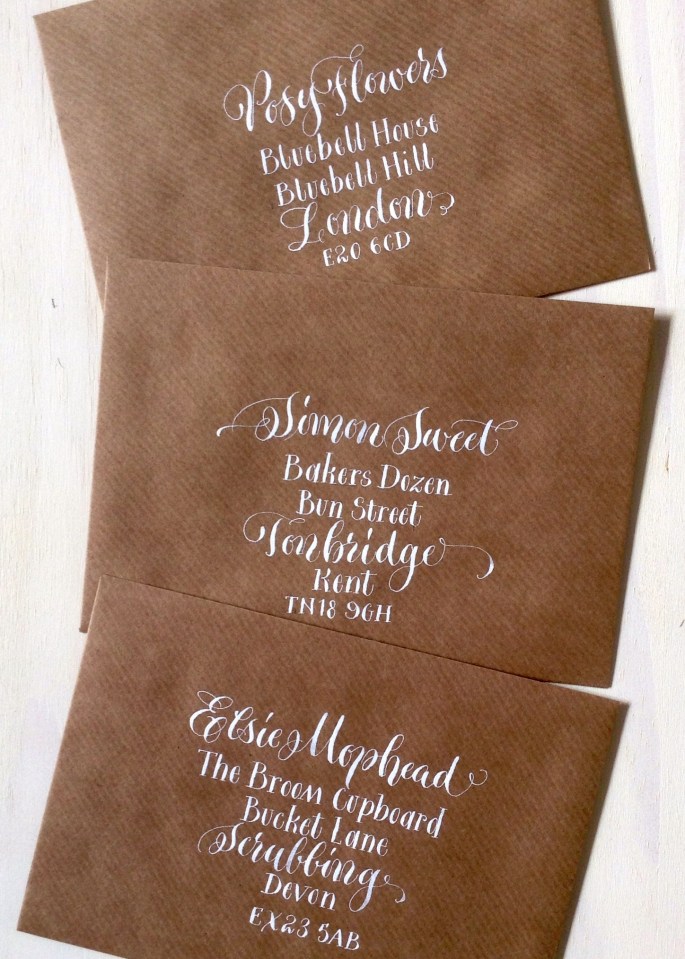 Posy Flowers
Bluebell House
Bluebell Hill
London
E20 6CD
Simon Sweet
Bakers Dozen
Bun Street
Tonbridge
Kent
TN18 9GH
Elsie Mophead
The Broom Cupboard
Bucket Lane
Scrubbing
Devon
EX23 5AB